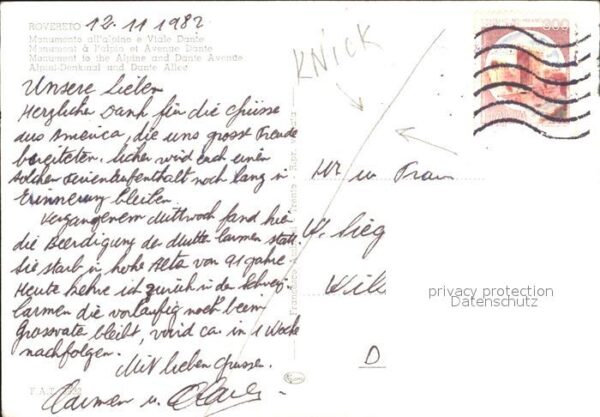 ROVERETO 12.11 1982
Monumento all'alpino e Viale Dante
Monument à l'alpin et Avenue Dante
Monument to the Alpine and Dante Avenue
Alpini-Denkmal und Dante Allee
KNICK
Unsere Lieben
Herzlichen Dank für die Grüsse
aus America, die uns grosse Freude
bereiteten. Sicher wird euch einen
solchen Ferienaufenthalt noch lang in
Erinnerung bleiben.
Vergangenem Mittwoch fand hier
die Beerdigung der Mutter Carmen statt.
Sie starb in hohe Alter von 91 Jahre
Heute kehre ich zurück in der Schweiz
Carmen die vorläufig noch beim
Grossvater bleibt, wird ca. in 1 Woche
nachfolgen.
Mit lieben Grüssen.
Carmen u.
Hr u Frau
privacy protection
Datenschutz
D